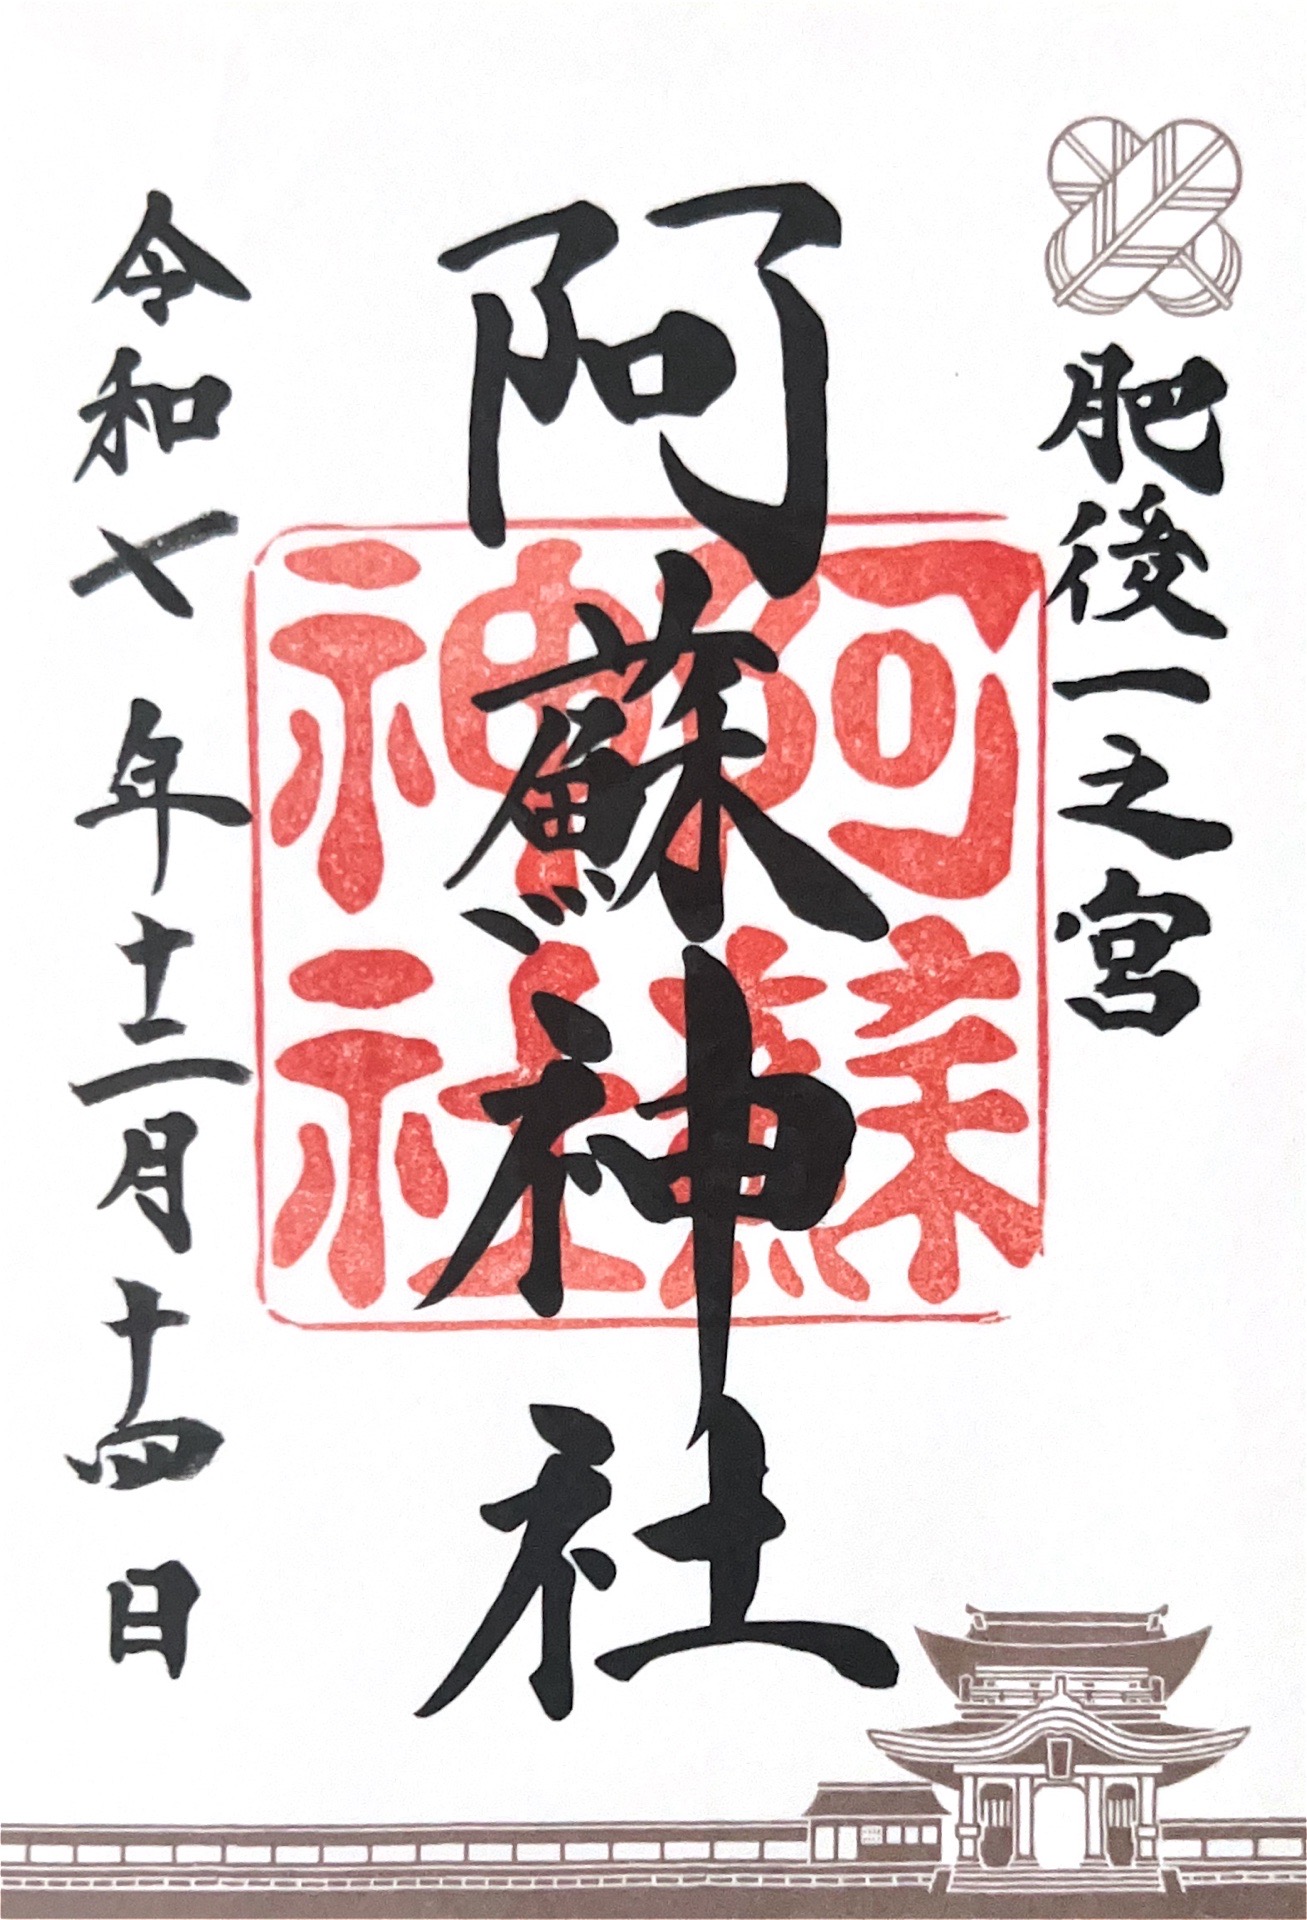 肥後一之宮
阿蘇神社
阿蘇神社
令和七年十二月十四日